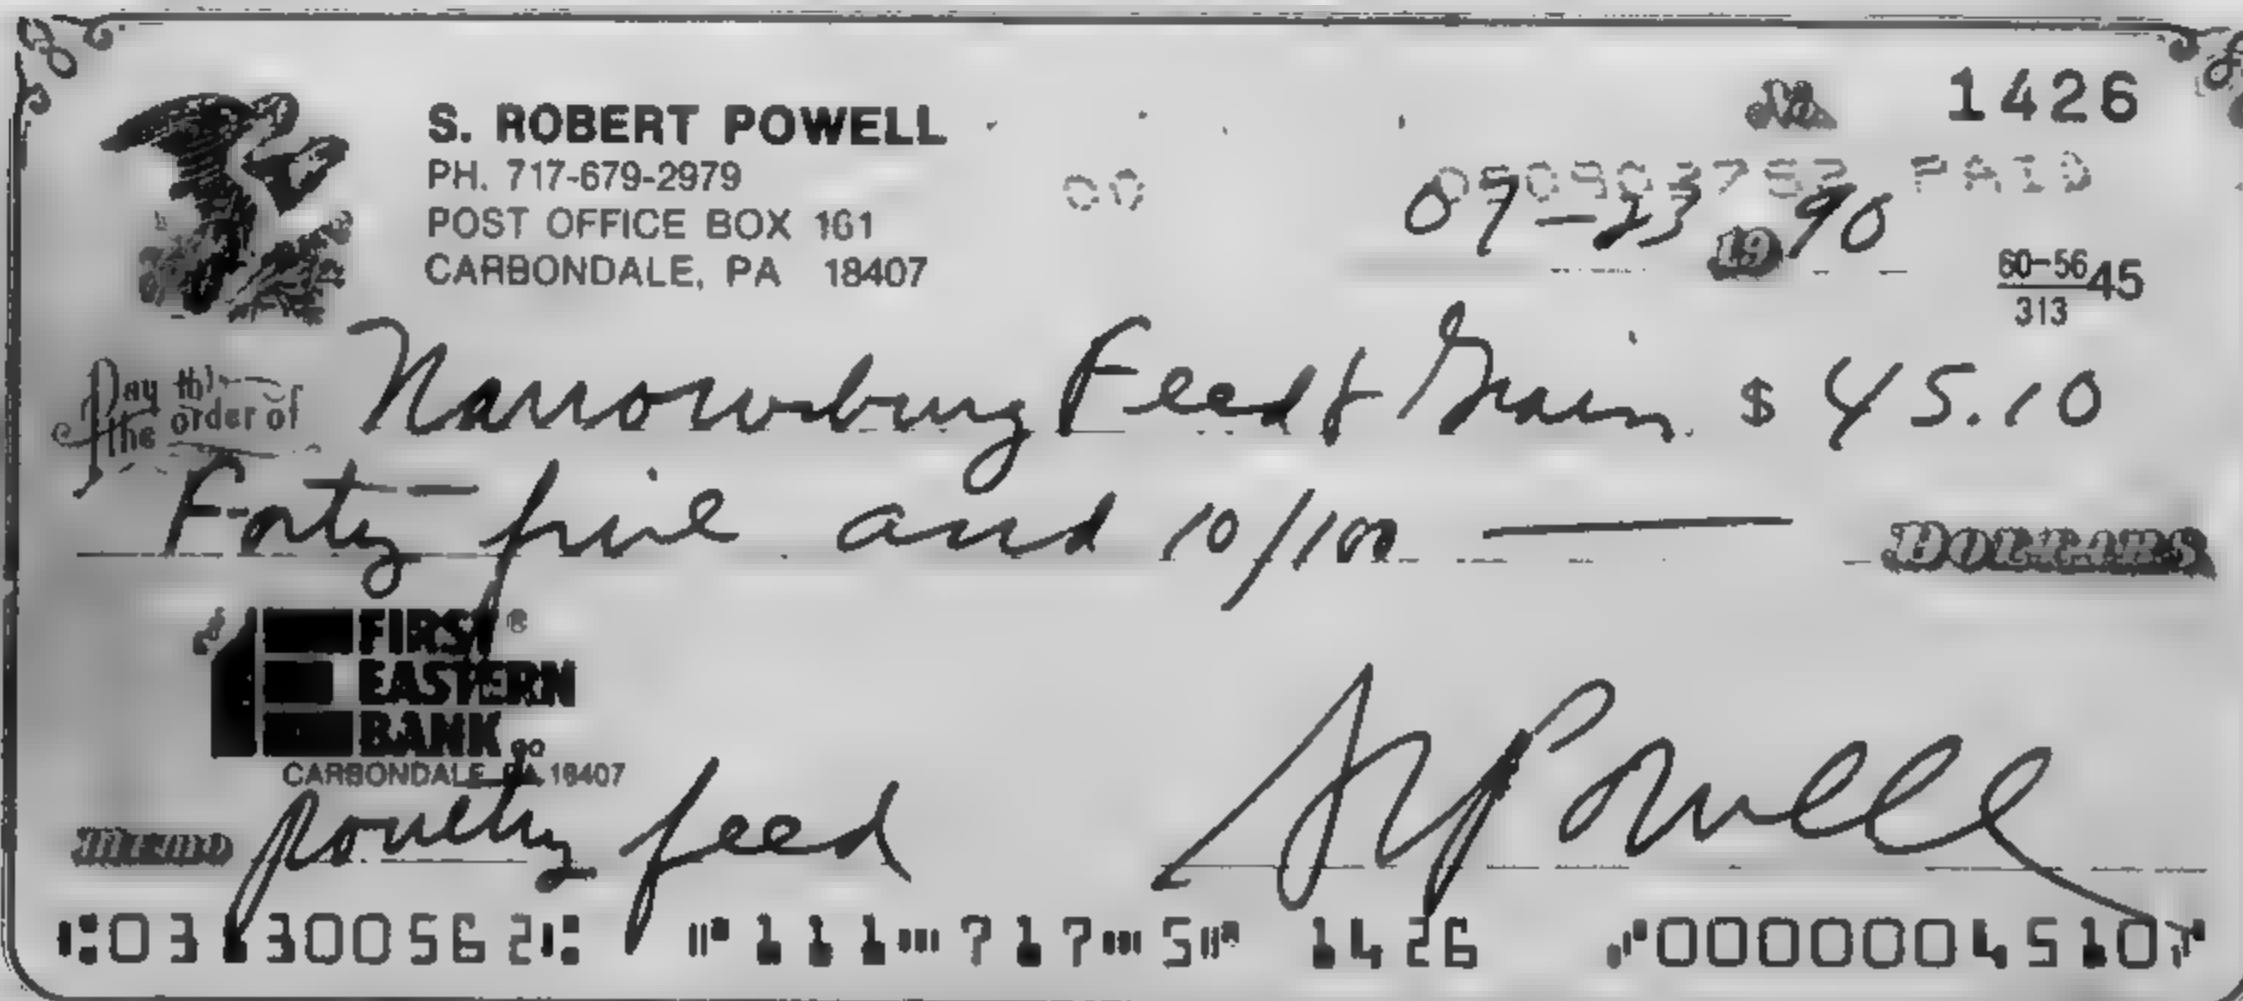 No. 1426
S. ROBERT POWELL
PH. 717-679-2979
POST OFFICE BOX 161
CARBONDALE, PA 18407
00
PAID
09-23 1990
60-56 45
313
Pay to the order of Narrowsburg Feed & Grain $ 45.10
Forty-five and 10/100 DOLLARS
FIRST®
EASTERN
BANK
CARBONDALE, PA 18407
MEMO poultry feed
SRPowell
⑆031300562⑆ ⑈111⑉717⑉5⑈ 1426 ⑈0000004510⑈